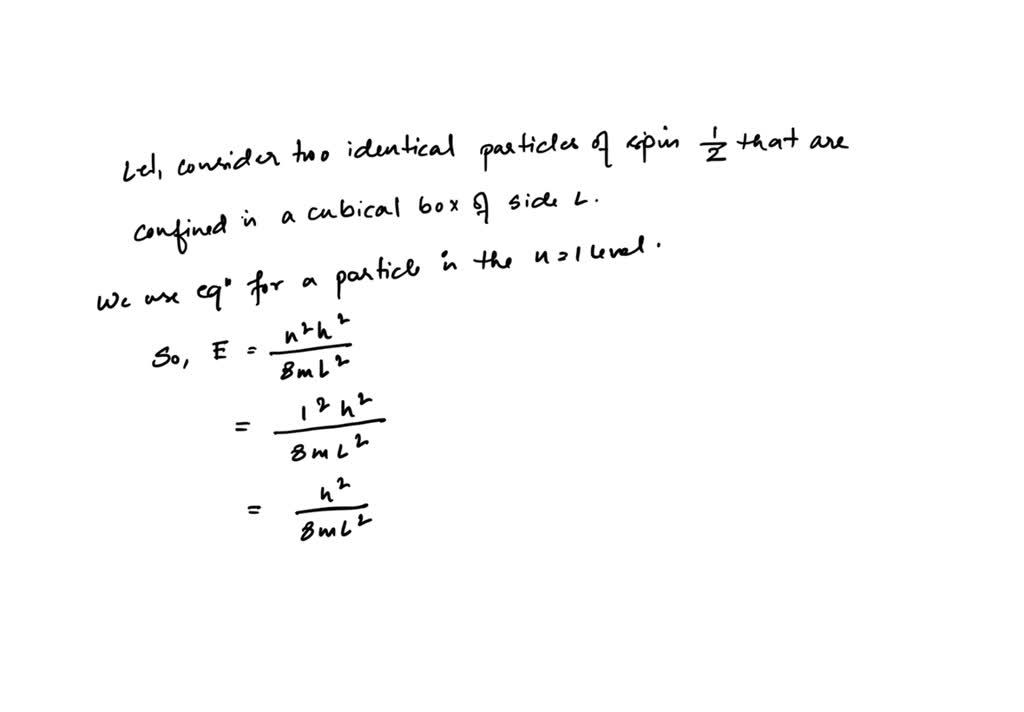 Let, consider two identical particles of spin 1/2 that are
confined in a cubical box of side L.
We use eqⁿ for a particle in the n=1 level.
So, E = n²h² / 8mL²
= 1²h² / 8mL²
= h² / 8mL²